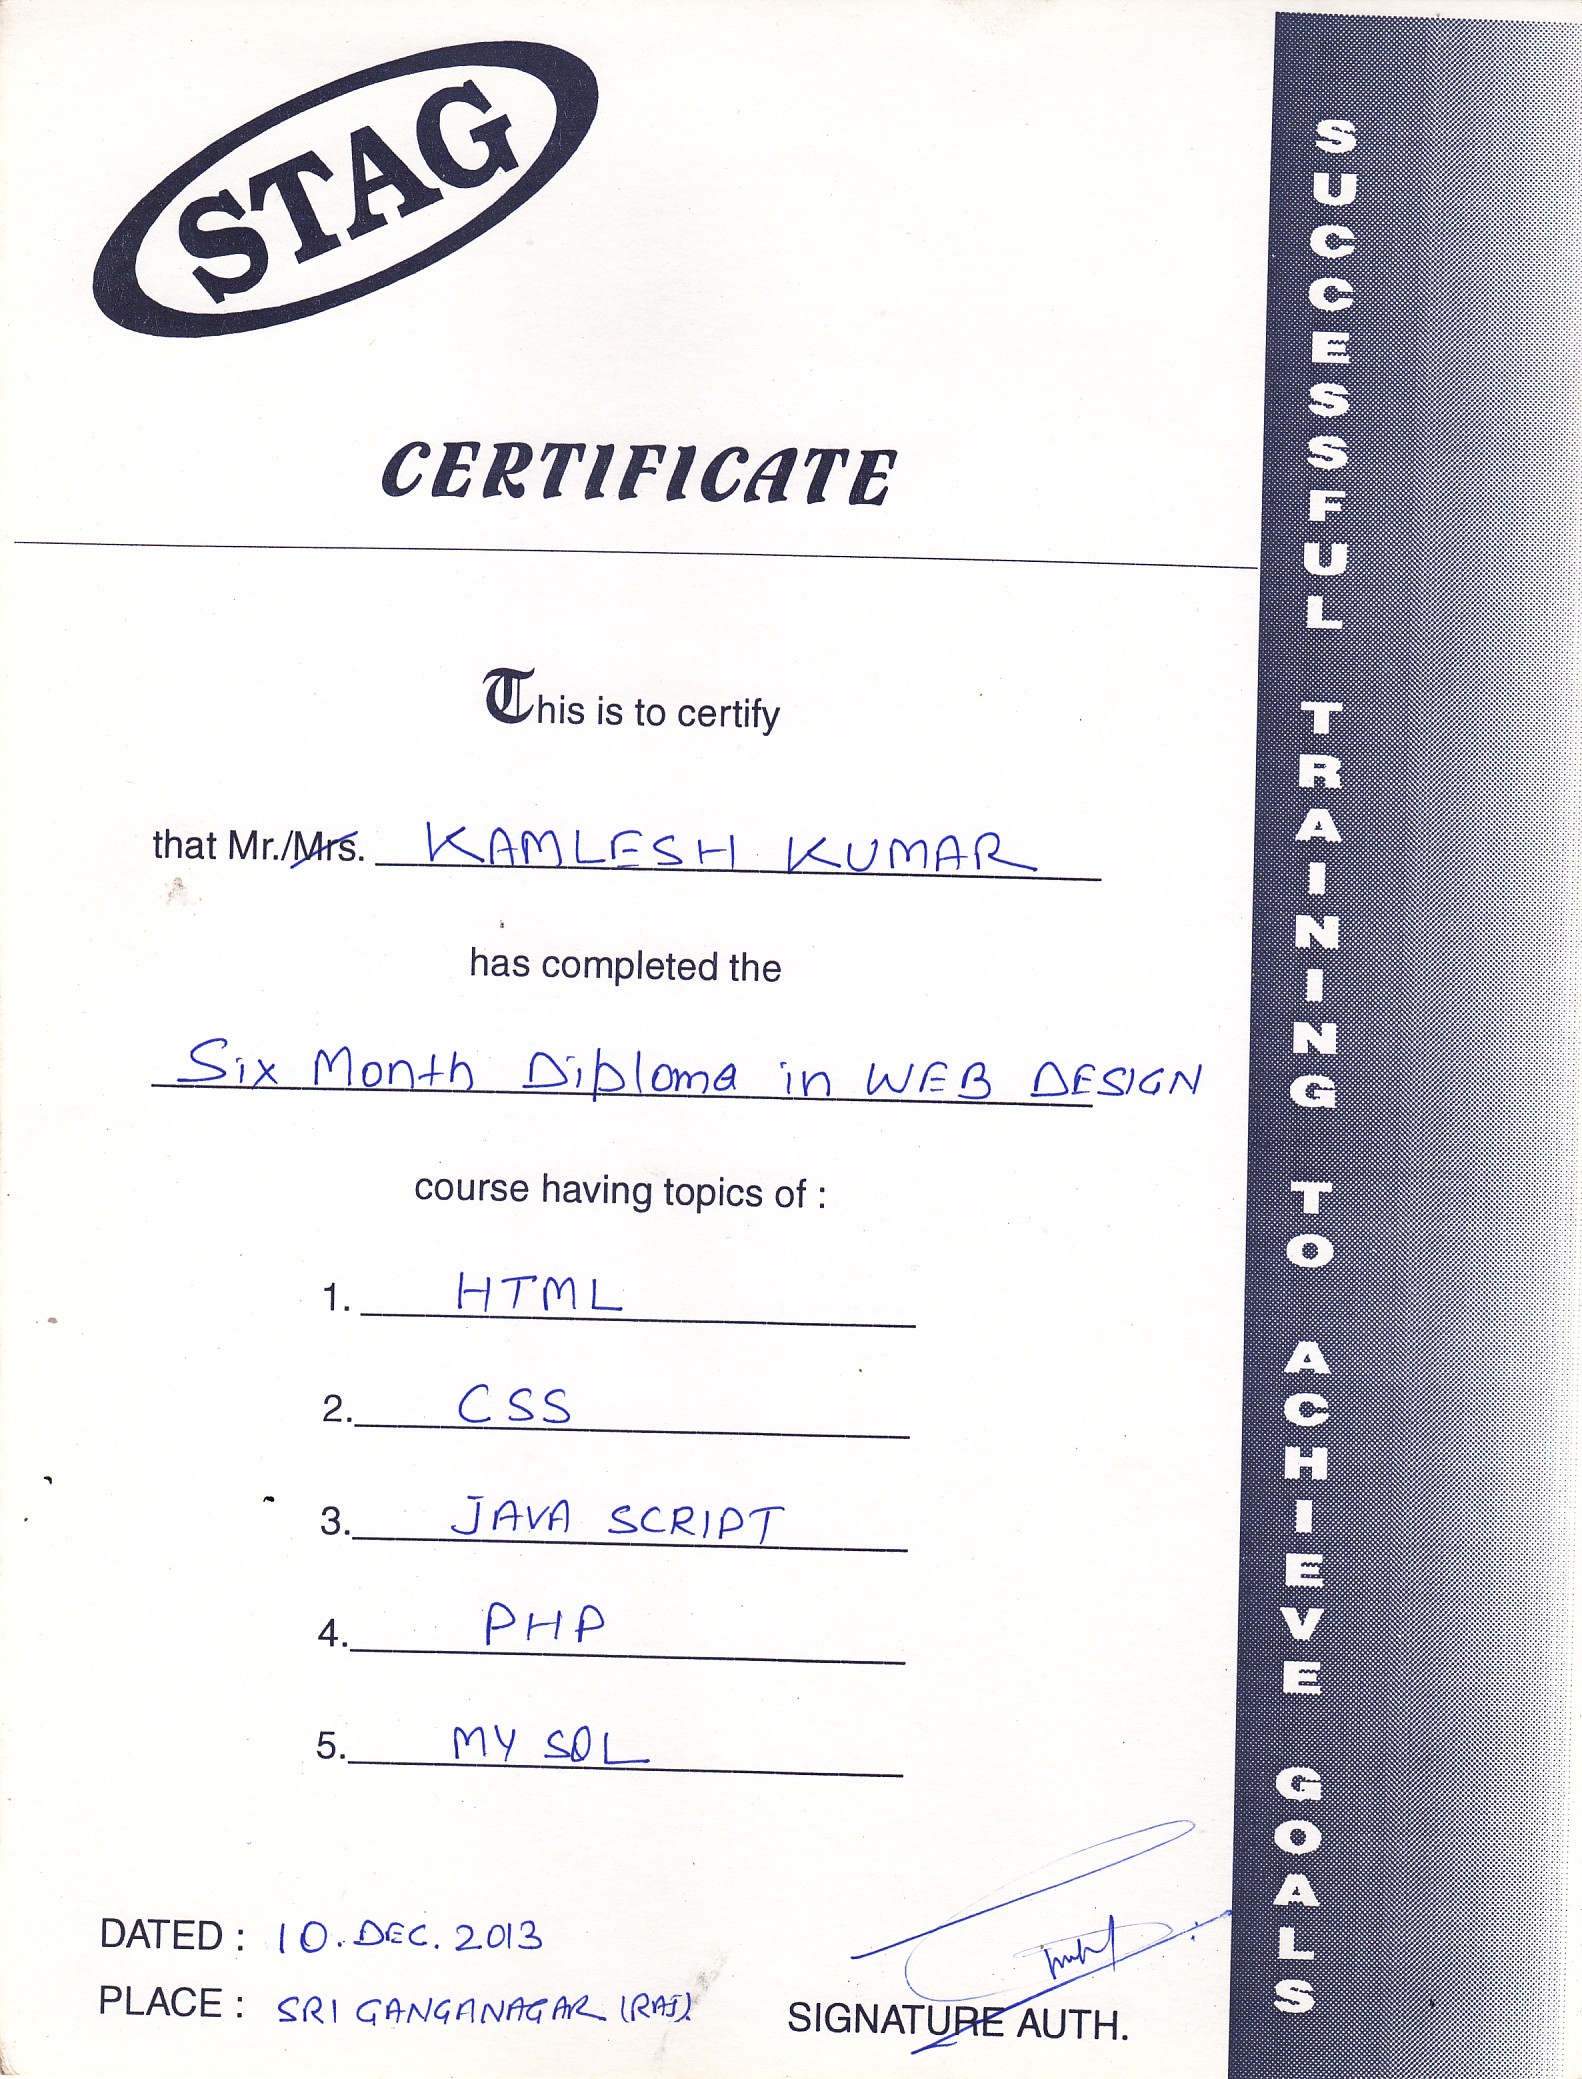 STAG
CERTIFICATE
This is to certify
that Mr./Mrs. KAMLESH KUMAR
has completed the
Six Month Diploma in WEB DESIGN
course having topics of :
1. HTML
2. CSS
3. JAVA SCRIPT
4. PHP
5. MY SQL
DATED : 10. DEC. 2013
PLACE : SRI GANGANAGAR (RAJ).
SIGNATURE AUTH.
SUCCESSFUL TRAINING TO ACHIEVE GOALS